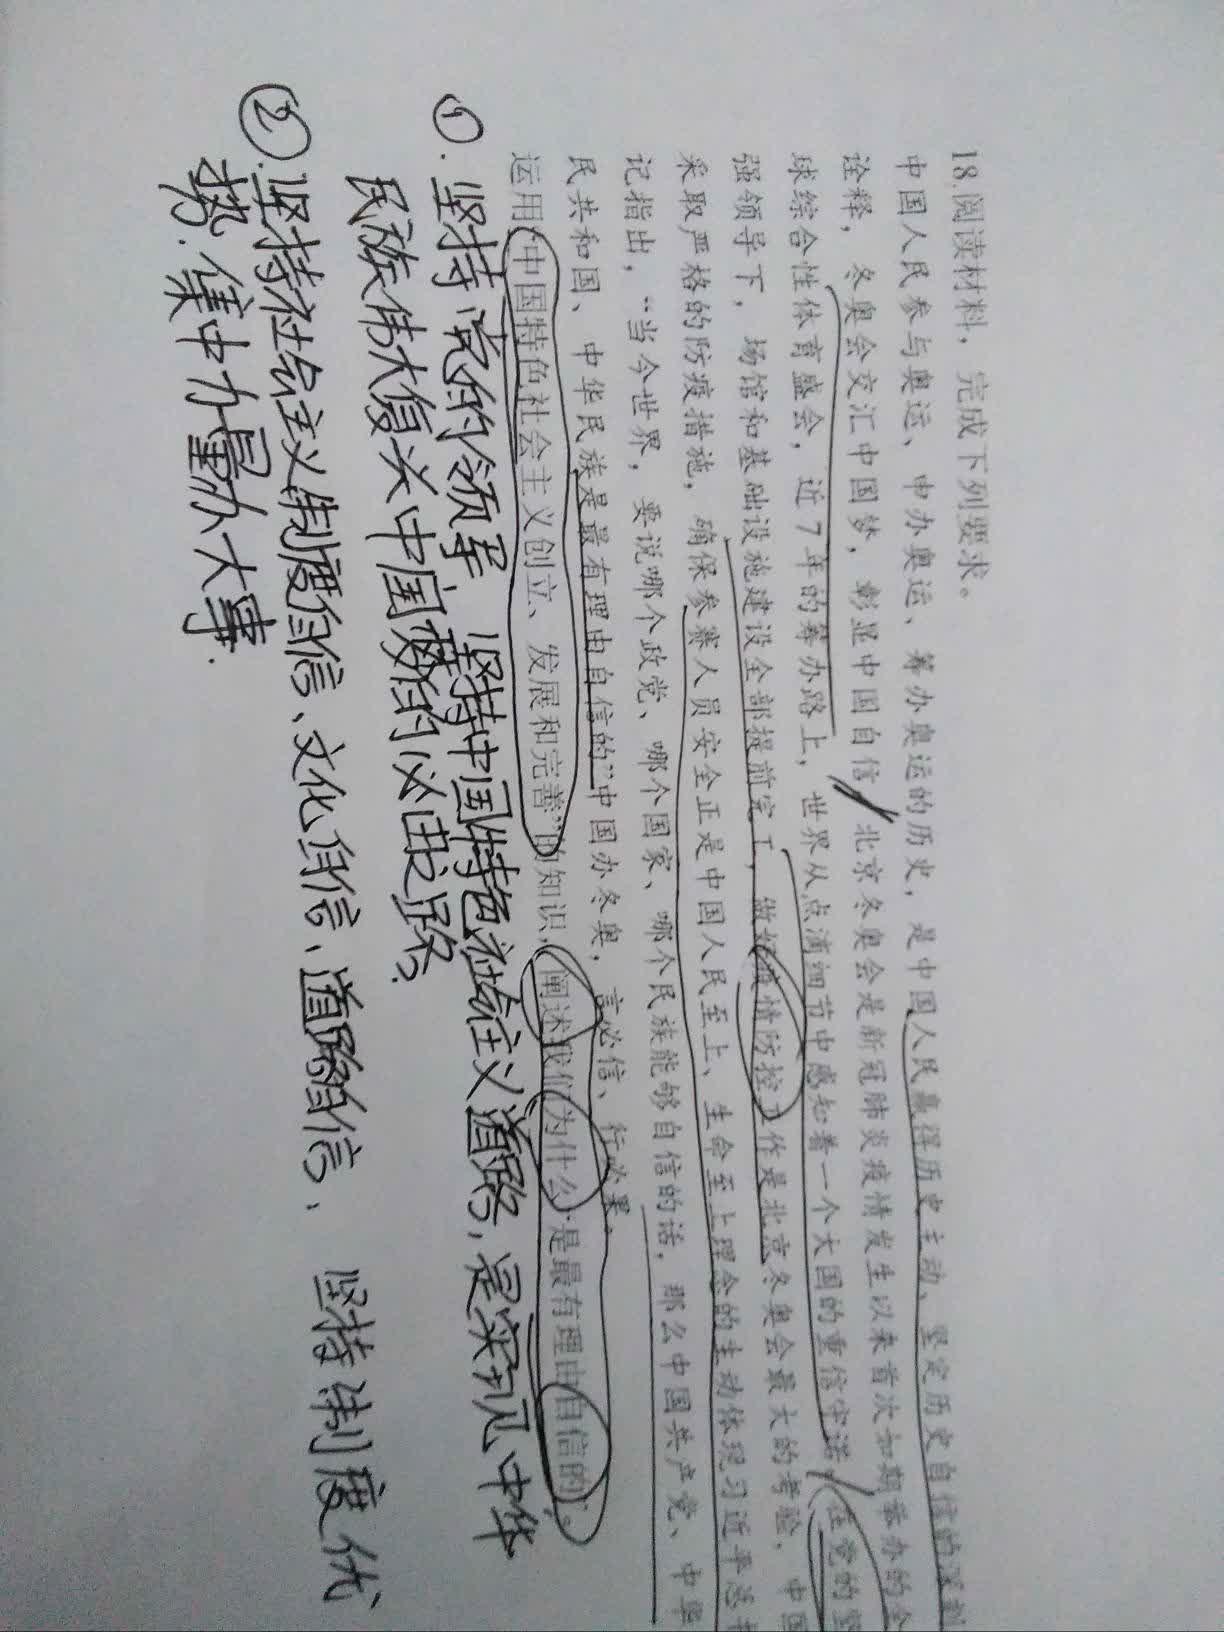 18.阅读材料，完成下列要求。
中国人民参与奥运、申办奥运、筹办奥运的历史，是中国人民赢得历史主动、坚定历史自信的深刻
诠释，冬奥会交汇中国梦，彰显中国自信 北京冬奥会是新冠肺炎疫情发生以来首次如期举办的全
球综合性体育盛会，近7年的筹办路上，世界从点滴细节中感知着一个大国的重信守诺。在党的坚
强领导下，场馆和基础设施建设全部提前完工，做好疫情防控工作是北京冬奥会最大的考验，中国
采取严格的防疫措施，确保参赛人员安全正是中国人民至上、生命至上理念的生动体现习近平总书
记指出，“当今世界，要说哪个政党、哪个国家、哪个民族能够自信的话，那么中国共产党、中华
民共和国、中华民族是最有理由自信的”中国办冬奥，言必信、行必果。
运用“中国特色社会主义创立、发展和完善”的知识，阐述我们为什么“是最有理由自信的”。
①.坚持党的领导，坚持中国特色社会主义道路，是实现中华
民族伟大复兴中国梦的必由之路。
②.坚持社会主义制度自信、文化自信、道路自信、坚持制度优
势.集中力量办大事.